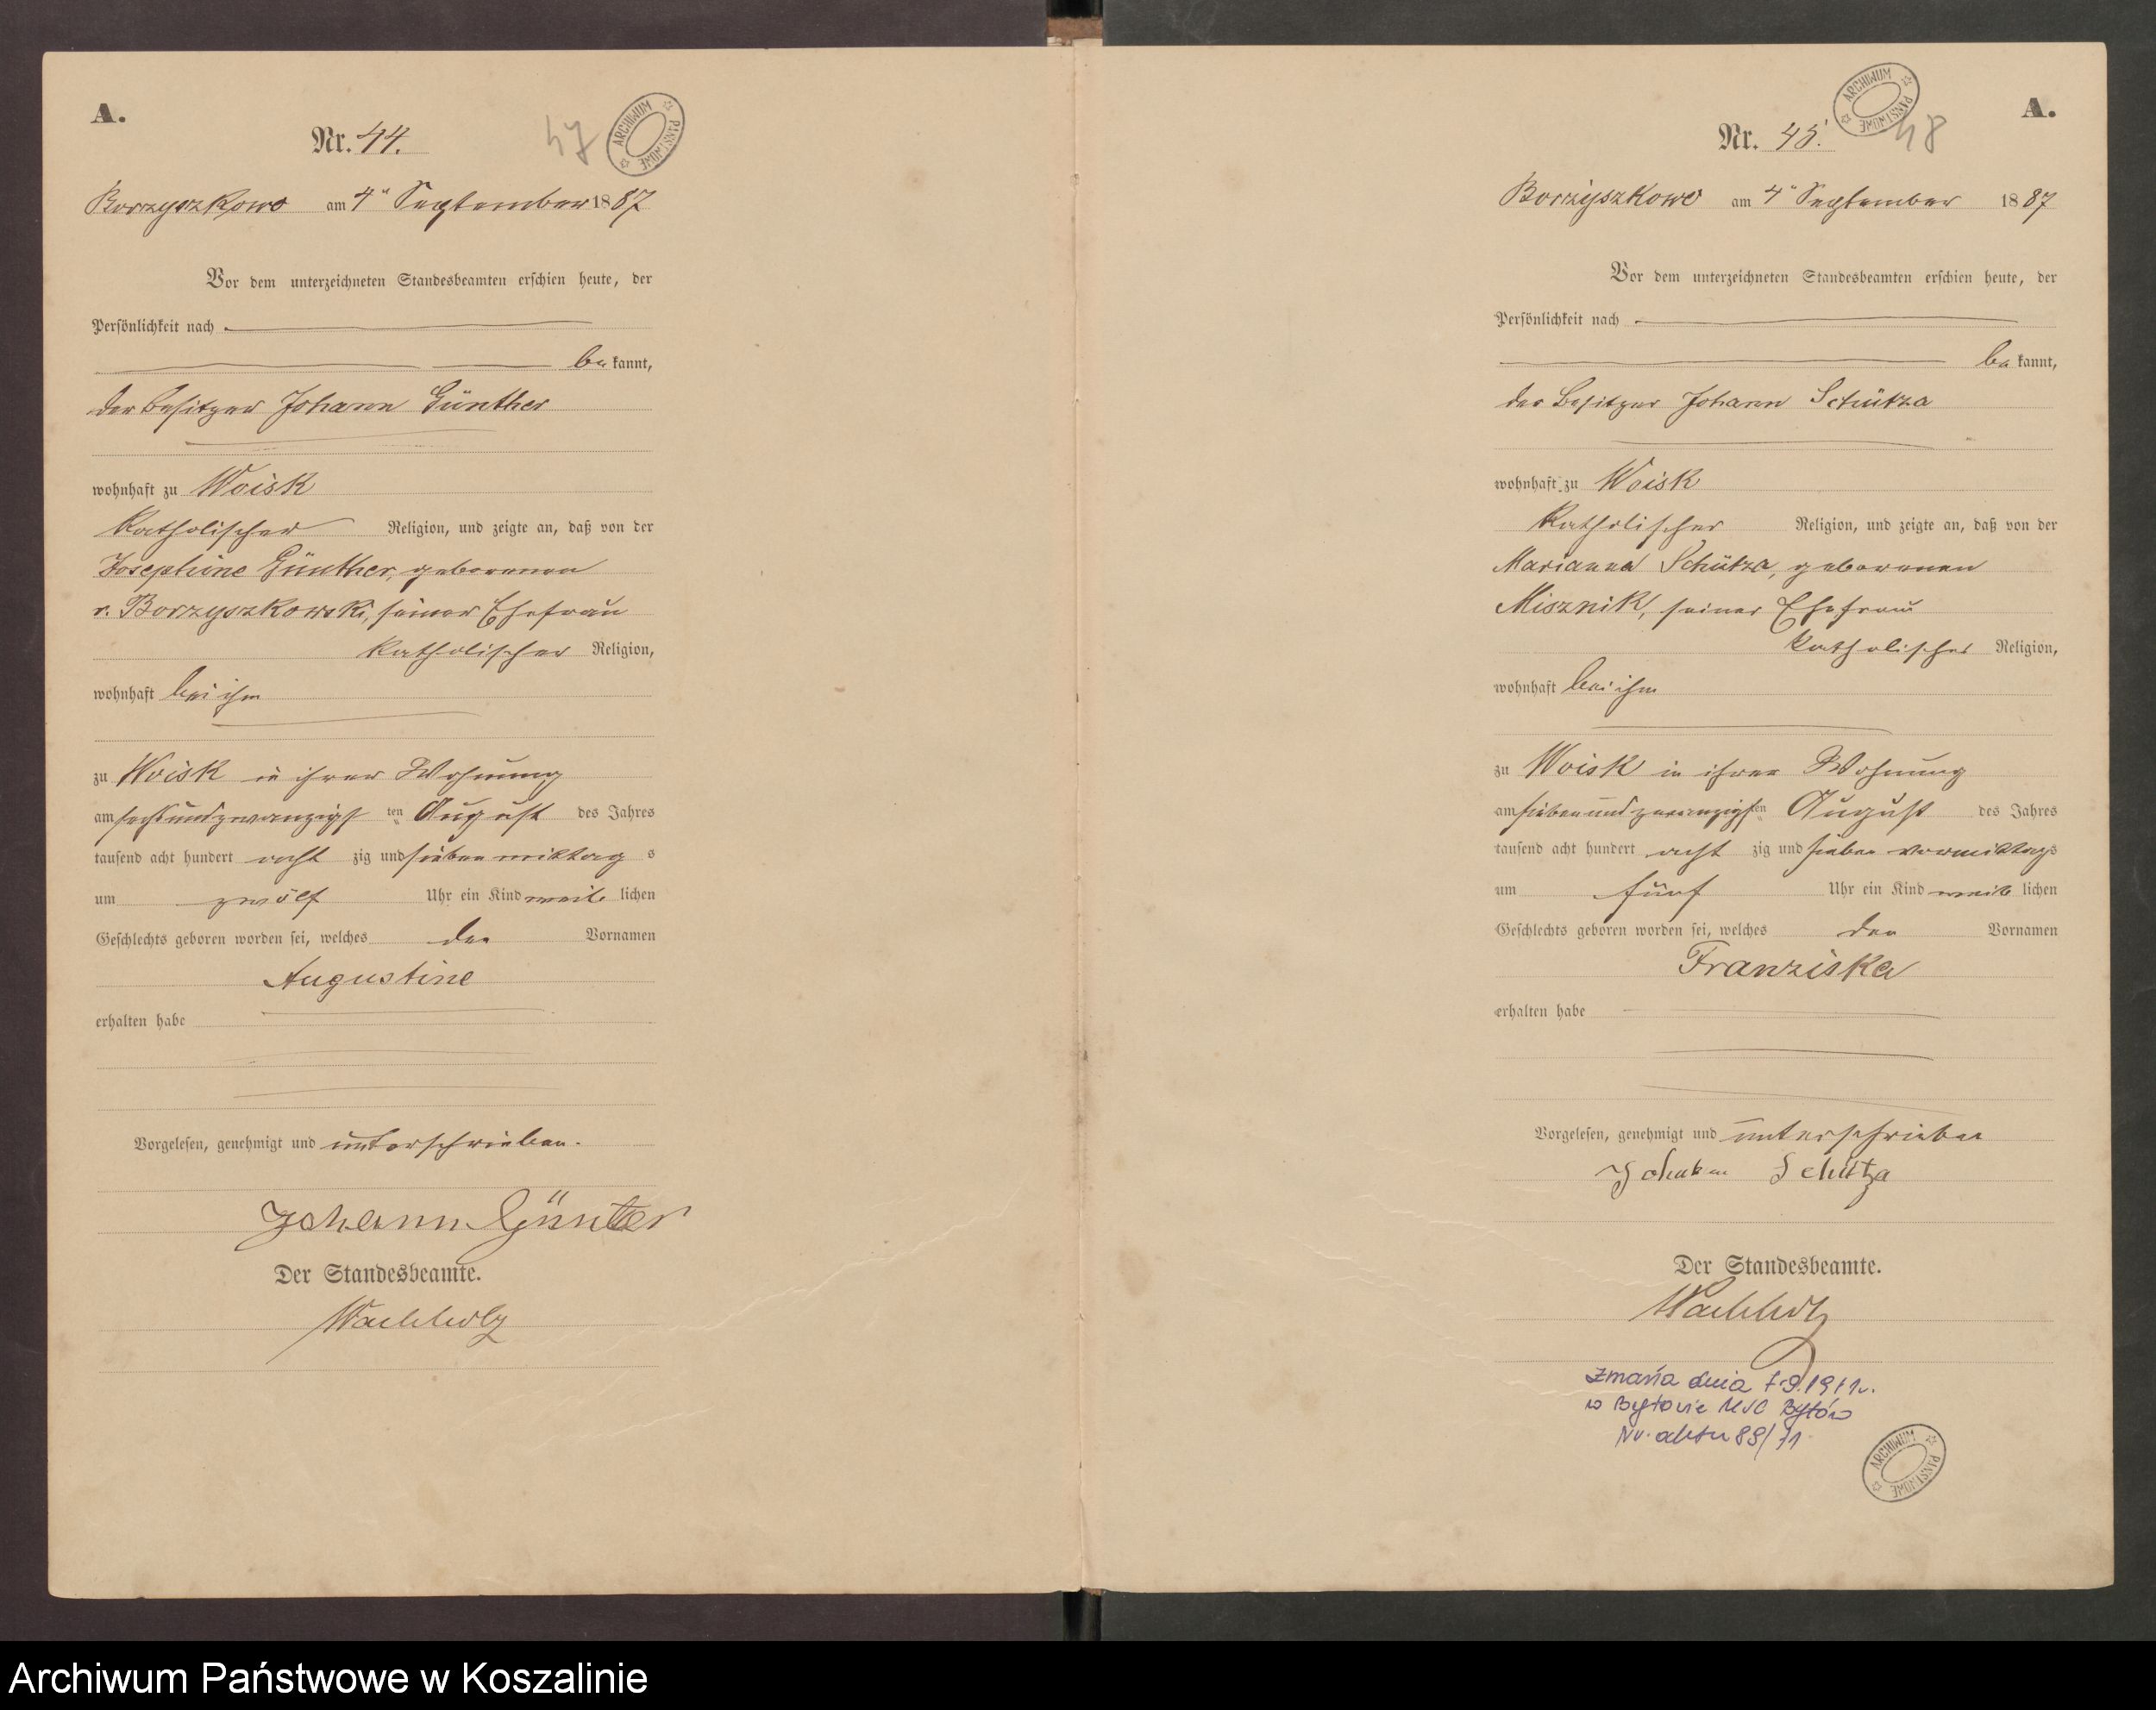 A.
Nr. 44.
47
ARCHIWUM PAŃSTWOWE
Borzyszkowo am 4ⁿ September 1887
Vor dem unterzeichneten Standesbeamten erschien heute, der
Persönlichkeit nach
be kannt,
der Besitzer Johann Günther
wohnhaft zu Woisk
katholischer Religion, und zeigte an, daß von der
Josephine Günther, geborenen
v. Borzyszkowski, seiner Ehefrau
katholischer Religion,
wohnhaft bei ihm
zu Woisk in ihrer Wohnung
am sechsundzwanzigs ten August des Jahres
tausend acht hundert acht zig und sieben mittag s
um zwölf Uhr ein Kind weib lichen
Geschlechts geboren worden sei, welches den Vornamen
Augustine
erhalten habe
Vorgelesen, genehmigt und unterschrieben.
Johann Günter
Der Standesbeamte.
Wachholz
A.
Nr. 45.
48
ARCHIWUM PAŃSTWOWE
Borzyszkowo am 4ⁿ September 1887
Vor dem unterzeichneten Standesbeamten erschien heute, der
Persönlichkeit nach
be kannt,
der Besitzer Johann Schütza
wohnhaft zu Woisk
katholischer Religion, und zeigte an, daß von der
Marianna Schütza, geborenen
Misznik, seiner Ehefrau
katholischer Religion,
wohnhaft bei ihm
zu Woisk in ihrer Wohnung
am siebenundzwanzigsten August des Jahres
tausend acht hundert acht zig und sieben vormittags
um fünf Uhr ein Kind weib lichen
Geschlechts geboren worden sei, welches den Vornamen
Franziska
erhalten habe
Vorgelesen, genehmigt und unterschrieben
Schütza
Der Standesbeamte.
Wachholz
zmarła dnia
w Bytowie USC Bytów
Nr. aktu 89/71
ARCHIWUM PAŃSTWOWE
Archiwum Państwowe w Koszalinie